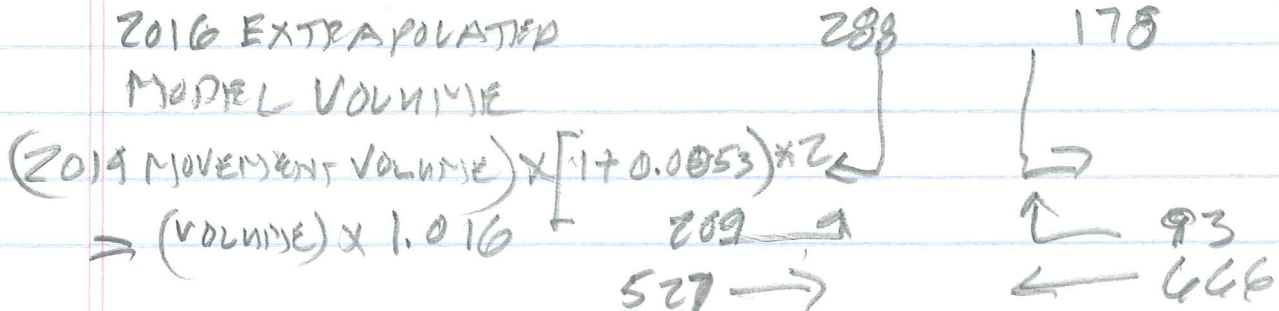 2016 EXTRAPOLATED 288 178
MODEL VOLUME
(2014 MOVEMENT VOLUME) x [1 + 0.0053) * 2
= (VOLUME) x 1.016 209 93
527 666